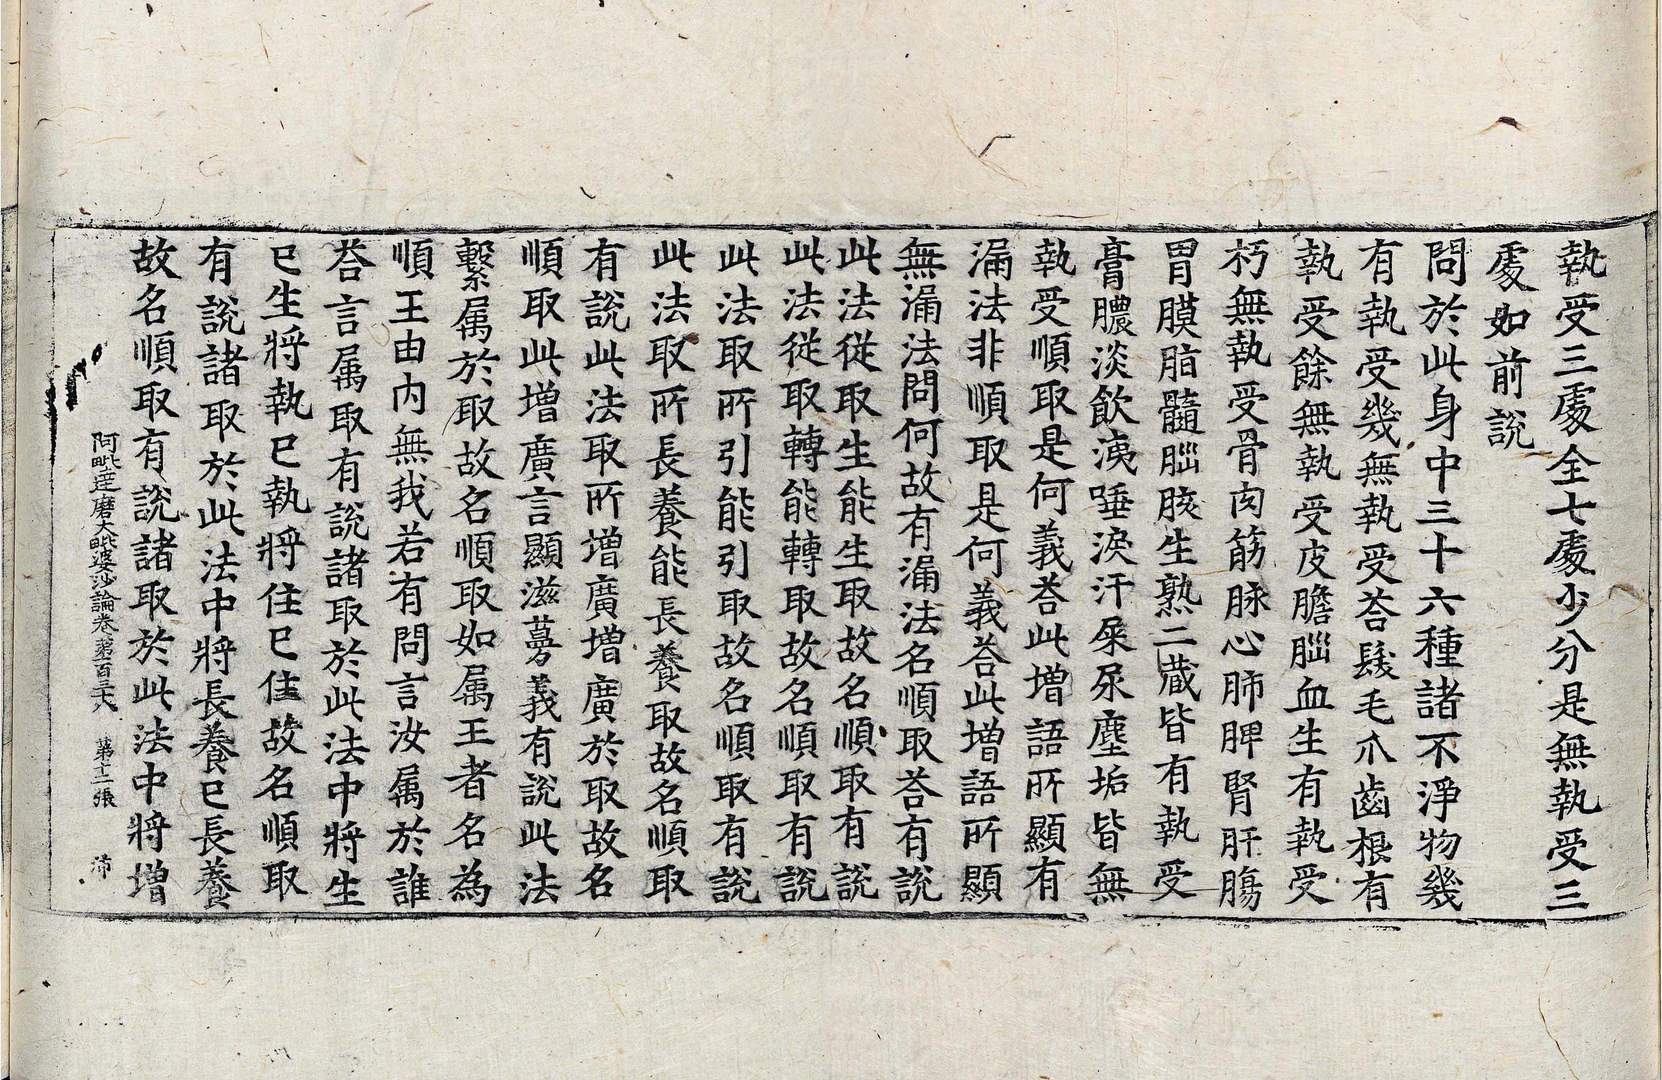 執受三處全七處少分是無執受三
處如前說
問於此身中三十六種諸不淨物幾
有執受幾無執受荅髮毛爪齒根有
執受餘無執受皮膽腦血生有執受
朽無執受骨肉筋脉心肺脾腎肝腸
胃膜脂髓腦胲生熟二藏皆有執受
膏膿淡飲洟唾淚汗屎尿塵垢皆無
執受順取是何義荅此增語所顯有
漏法非順取是何義荅此增語所顯
無漏法問何故有漏法名順取荅有說
此法從取生能生取故名順取有說
此法從取轉能轉取故名順取有說
此法取所引能引取故名順取有說
此法取所長養能長養取故名順取
有說此法取所增廣增廣於取故名
順取此增廣言顯滋蔓義有說此法
繫属於取故名順取如属王者名為
順王由內無我若有問言汝属於誰
荅言属取有說諸取於此法中將生
已生將執已執將住已住故名順取
有說諸取於此法中將長養已長養
故名順取有說諸取於此法中將增
阿毗達磨大毗婆沙論卷第百三十八 第十二張 沛